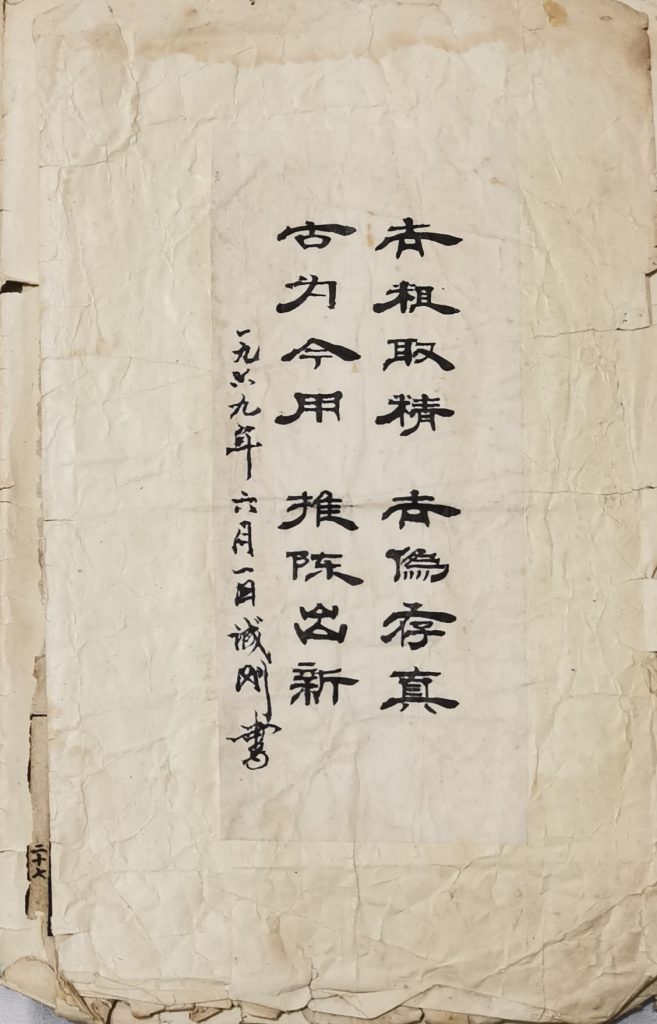 去粗取精 去伪存真
古为今用 推陈出新
一九六九年六月一日诚刚书
二十七